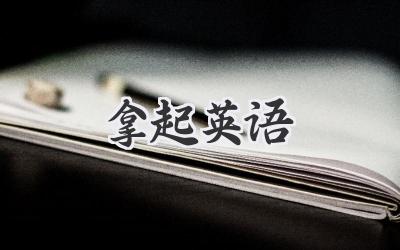 拿起英语